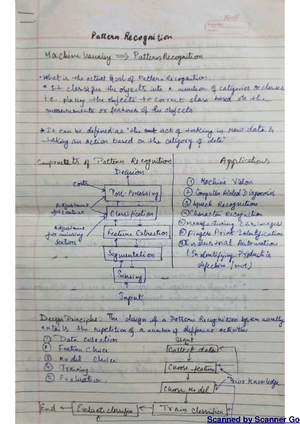 Pattern Recognition
Machine Vision ⟹ Pattern Recognition
• What is the actual goal of Pattern Recognition
* It classifies the objects into a number of categories or classes
i.e. placing the objects to correct class based on the
measurements or features of the objects
* It can be defined as "the act of taking in raw data &
taking an action based on the category of data"
Components of Pattern Recognition
Applications
Decision
costs
Post Processing
Adjustments for context
Classification
Adjustments for missing feature
Feature Extraction
Segmentation
Sensing
Input
① Machine Vision
② Computer Aided Diagnosis
③ Speech Recognition
④ Character Recognition
⑤ Manufacturing
⑥ Finger Print Identification
⑦ Industrial Automation
(In identifying Product is defective / not)
Design Principles: The design of a Pattern Recognition system usually
entails the repetition of a number of different activities
① Data Collection
② Feature Choice
③ Model Choice
④ Training
⑤ Evaluation
Start
Collect data
Choose feature
Choose Model
Prior Knowledge
Train Classifier
Evaluate classifier
End
Scanned by Scanner Go